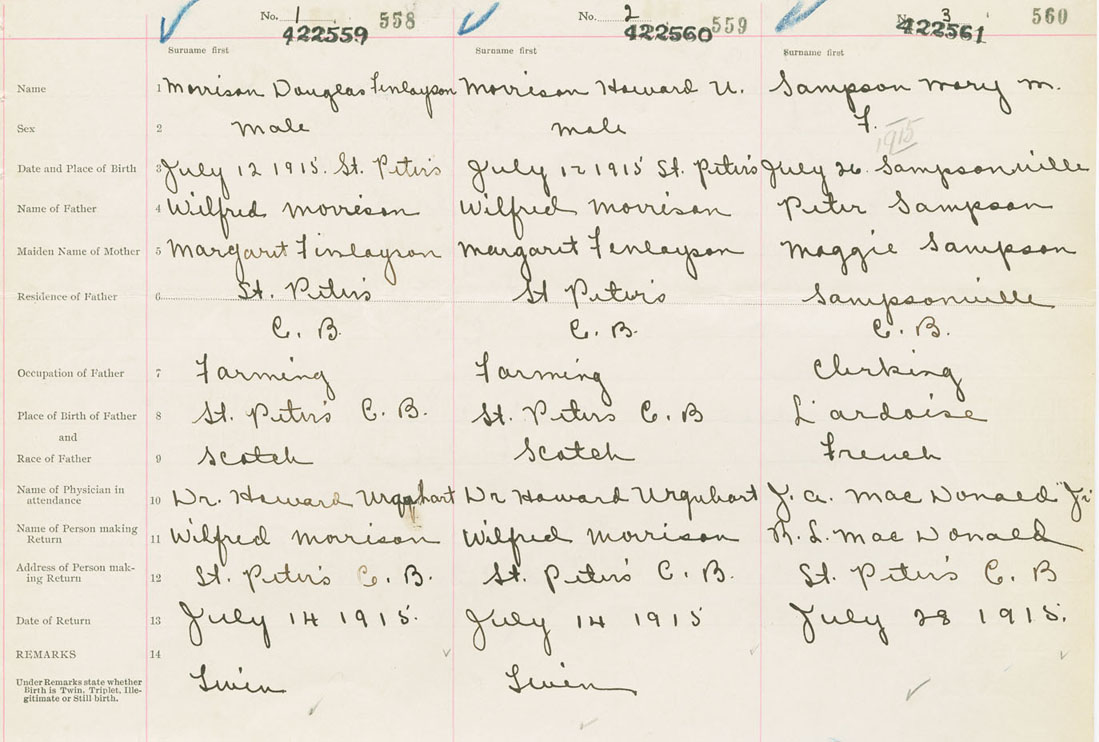 No. 1 558 No. 2 559 No. 3 560
422559 422560 422561
Surname first Surname first Surname first
Name 1 Morrison Douglas Finlayson Morrison Howard U. Sampson Mary M.
Sex 2 Male Male F.
1915
Date and Place of Birth 3 July 12 1915. St. Peter's July 12 1915 St. Peter's July 26. Sampsonville
Name of Father 4 Wilfred Morrison Wilfred Morrison Peter Sampson
Maiden Name of Mother 5 Margaret Finlayson Margaret Finlayson Maggie Sampson
Residence of Father 6 St. Peter's St Peter's Sampsonville
C. B. C. B. C. B.
Occupation of Father 7 Farming Farming Clerking
Place of Birth of Father 8 St. Peter's C. B. St. Peter's C. B L'ardoise
and
Race of Father 9 Scotch Scotch French
Name of Physician in
attendance 10 Dr. Howard Urquhart Dr Howard Urquhart J. A. MacDonald Jr
Name of Person making
Return 11 Wilfred Morrison Wilfred Morrison R. L. MacDonald
Address of Person mak-
ing Return 12 St. Peter's C. B. St. Peter's C. B. St. Peter's C. B
Date of Return 13 July 14 1915. July 14 1915 July 28 1915.
REMARKS 14
Under Remarks state whether
Birth is Twin, Triplet, Ille-
gitimate or Still birth.
Twin Twin